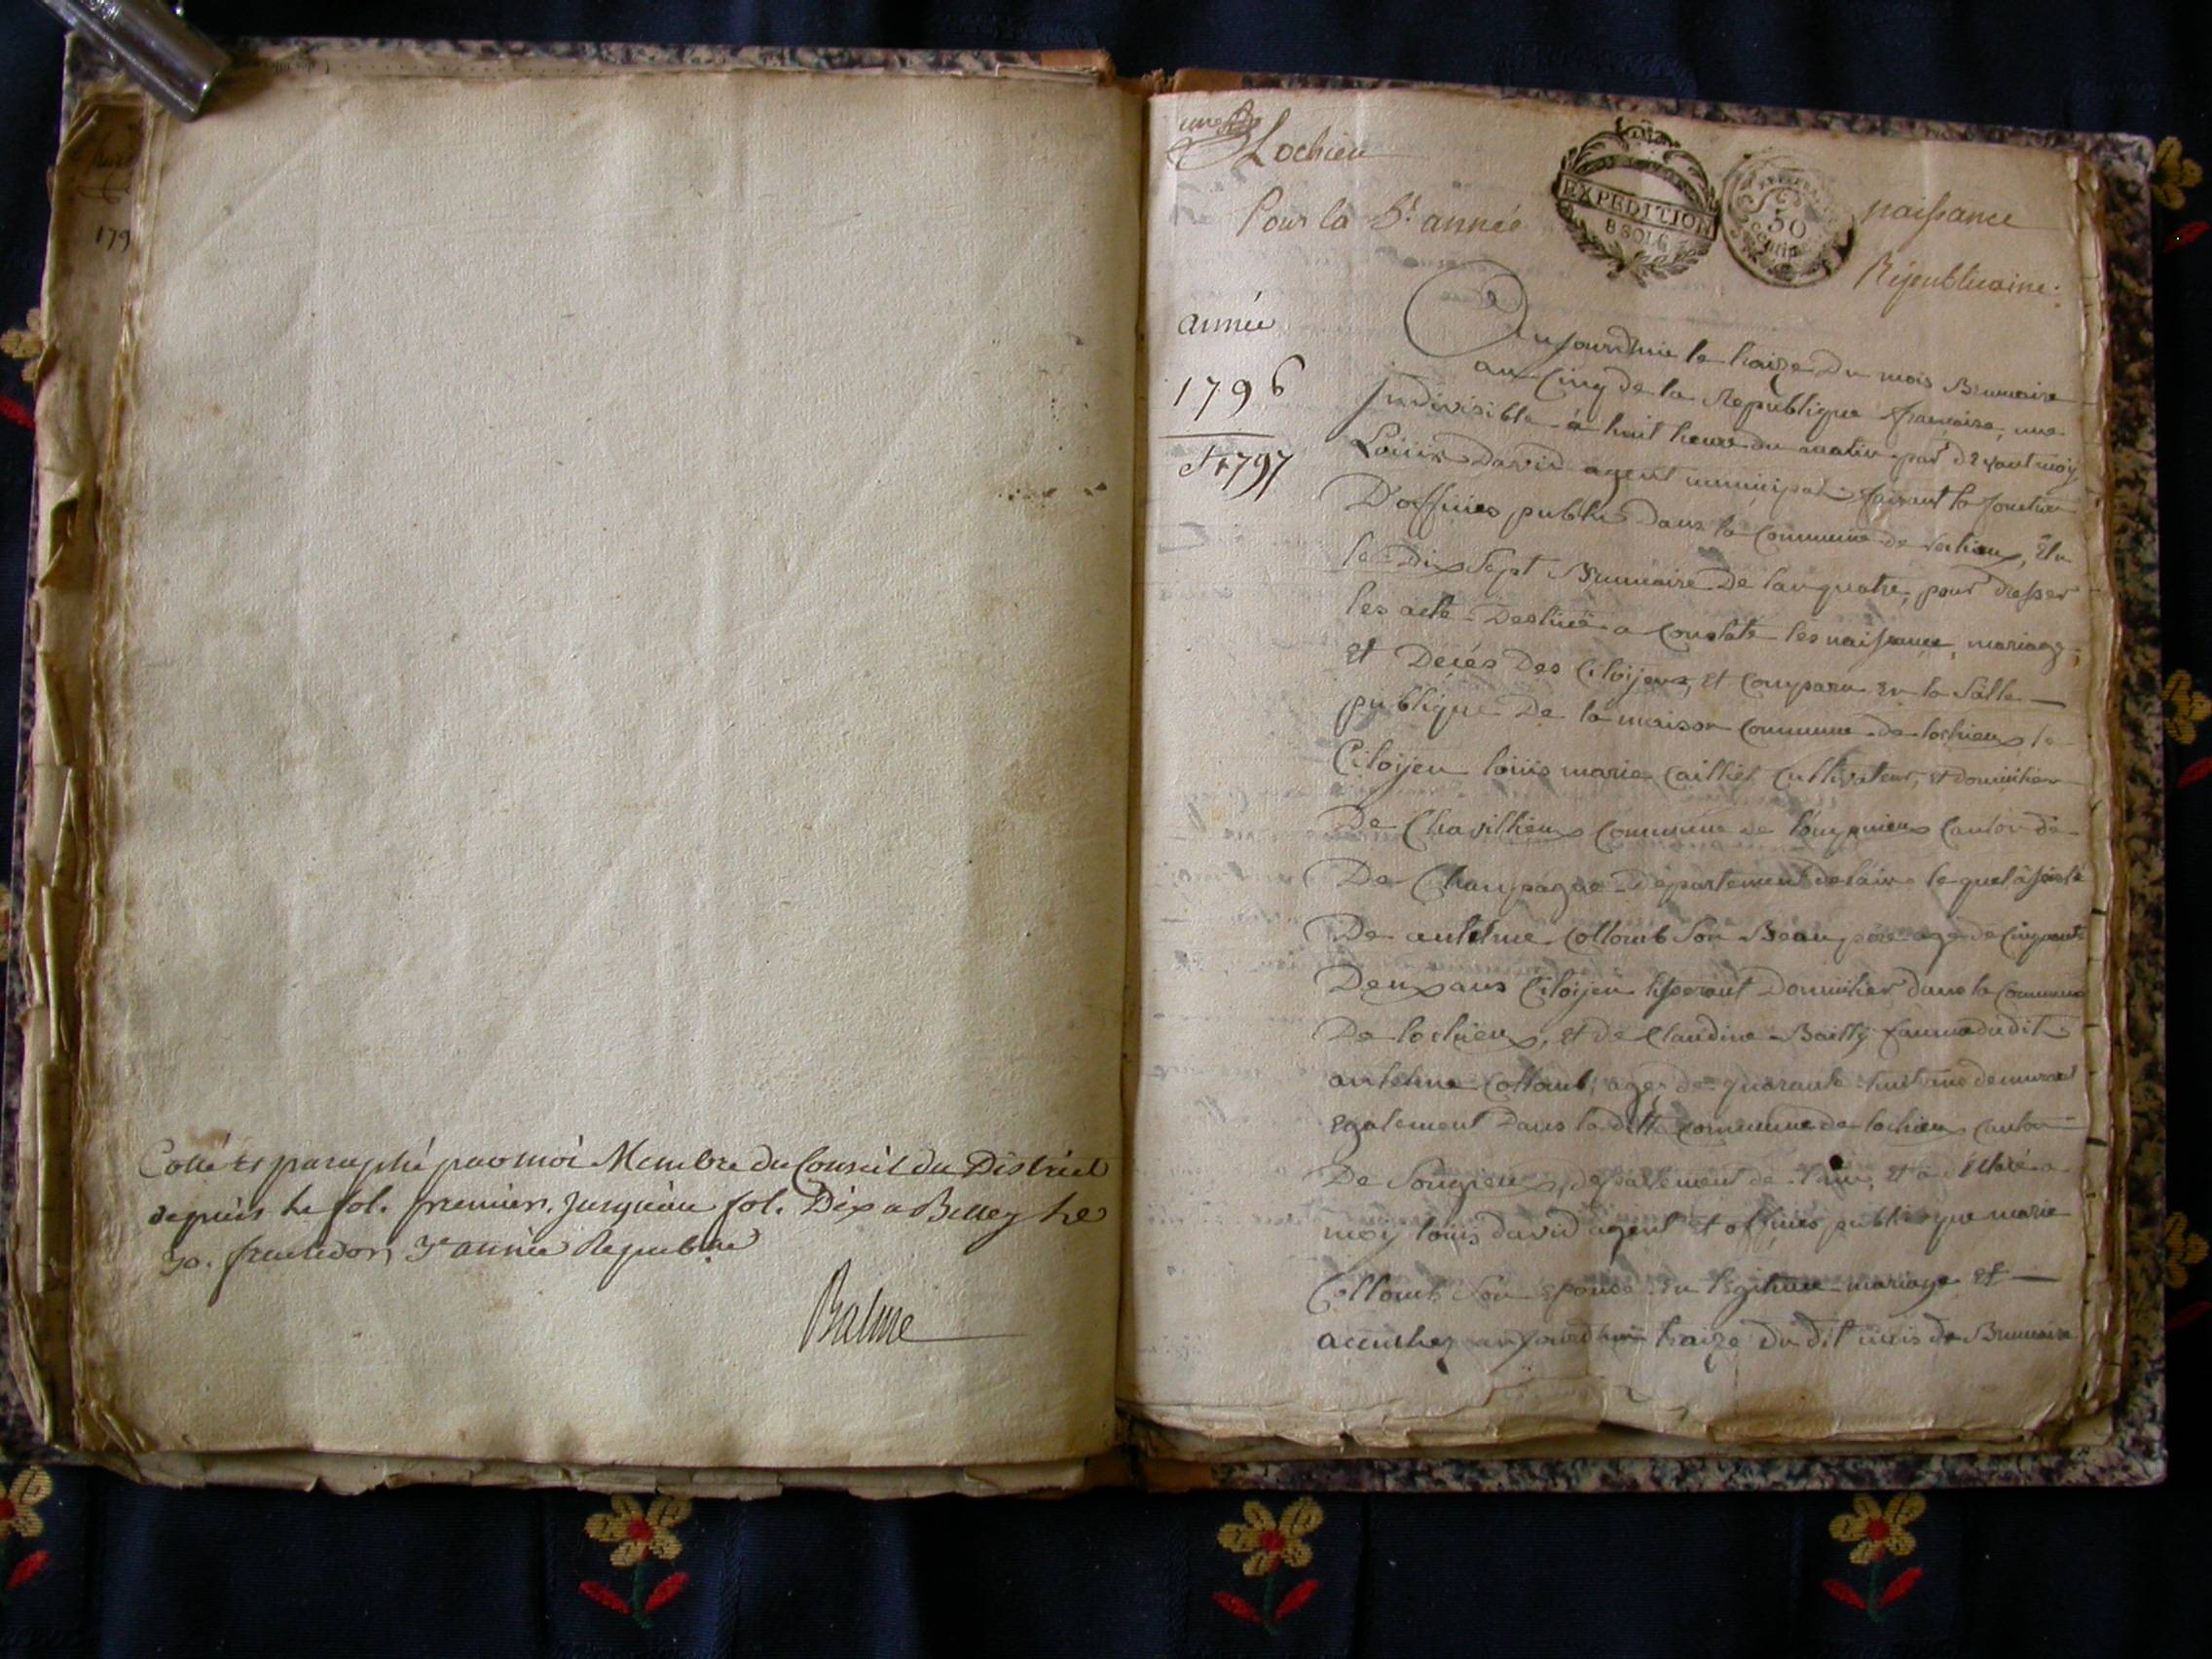 179
Cotté et paraphé par moi Membre du Conseil du District
depuis le fol. premier. jusqu'au fol. Dix a Belley le
30. fructidor, 3e année Republne
Balme
Lochieu
EXPEDITION
8 SOLS
50
centim
naissance
Pour la 5e année
Républicaine.
année
1796
et 1797
Aujourdhuie le traize Du mois Brumaire
an Cinq de la Republique francaise, une
Indivisible à huit heure du matin par devant moy
Louis David agent municipal faisant la fonction
D'officies public dans la Commune de lochieux, Elu
le Dix Sept Brumaire De lan quatre, pour dresser
les acte Destiné a Constate les naissance, mariage,
et Décés Des Citoijens, et Comparu en la Salle
publique De la maison Commune de lochieux le
Citoijen louis marie Cailliet Cultivateur, et domicilier
De Chavillieux Commune de Songnieux Canton de
De Champagne Département de lain le quel assisté
De antelme Collomb Son Beau pere age de Cinquante
Deux ans Citoijen tisserant Domicilier dans la Commune
De lochieux, et de Claudine Bailly famme du dit
antelme Collomb, age de quarante huit ans demurant
Egalement Dans la ditte Commune de lochieu Canton
De Songieux, departement de l'ain, et a déclaré a
moy louis david agent et officies public que marie
Collomb Son Epouse En legitime mariage Et
acouchez aujourdhuie traize du dit mois de Brumaire